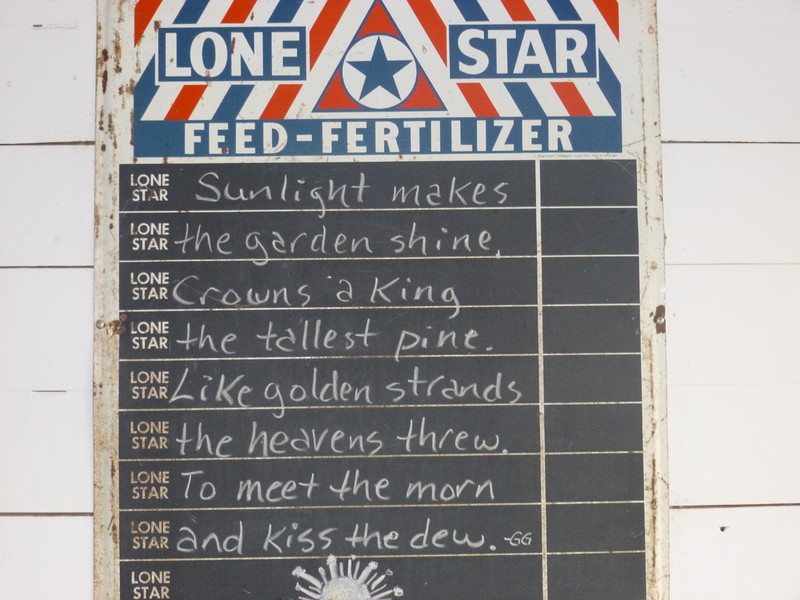 LONE STAR
FEED-FERTILIZER
LONE STAR Sunlight makes
LONE STAR the garden shine.
LONE STAR Crowns a King
LONE STAR the tallest pine.
LONE STAR Like golden strands
LONE STAR the heavens threw.
LONE STAR To meet the morn
LONE STAR and kiss the dew. -GG
LONE STAR